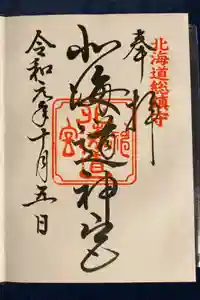 北海道総鎮守
奉拝
北海道神宮
令和元年十月五日